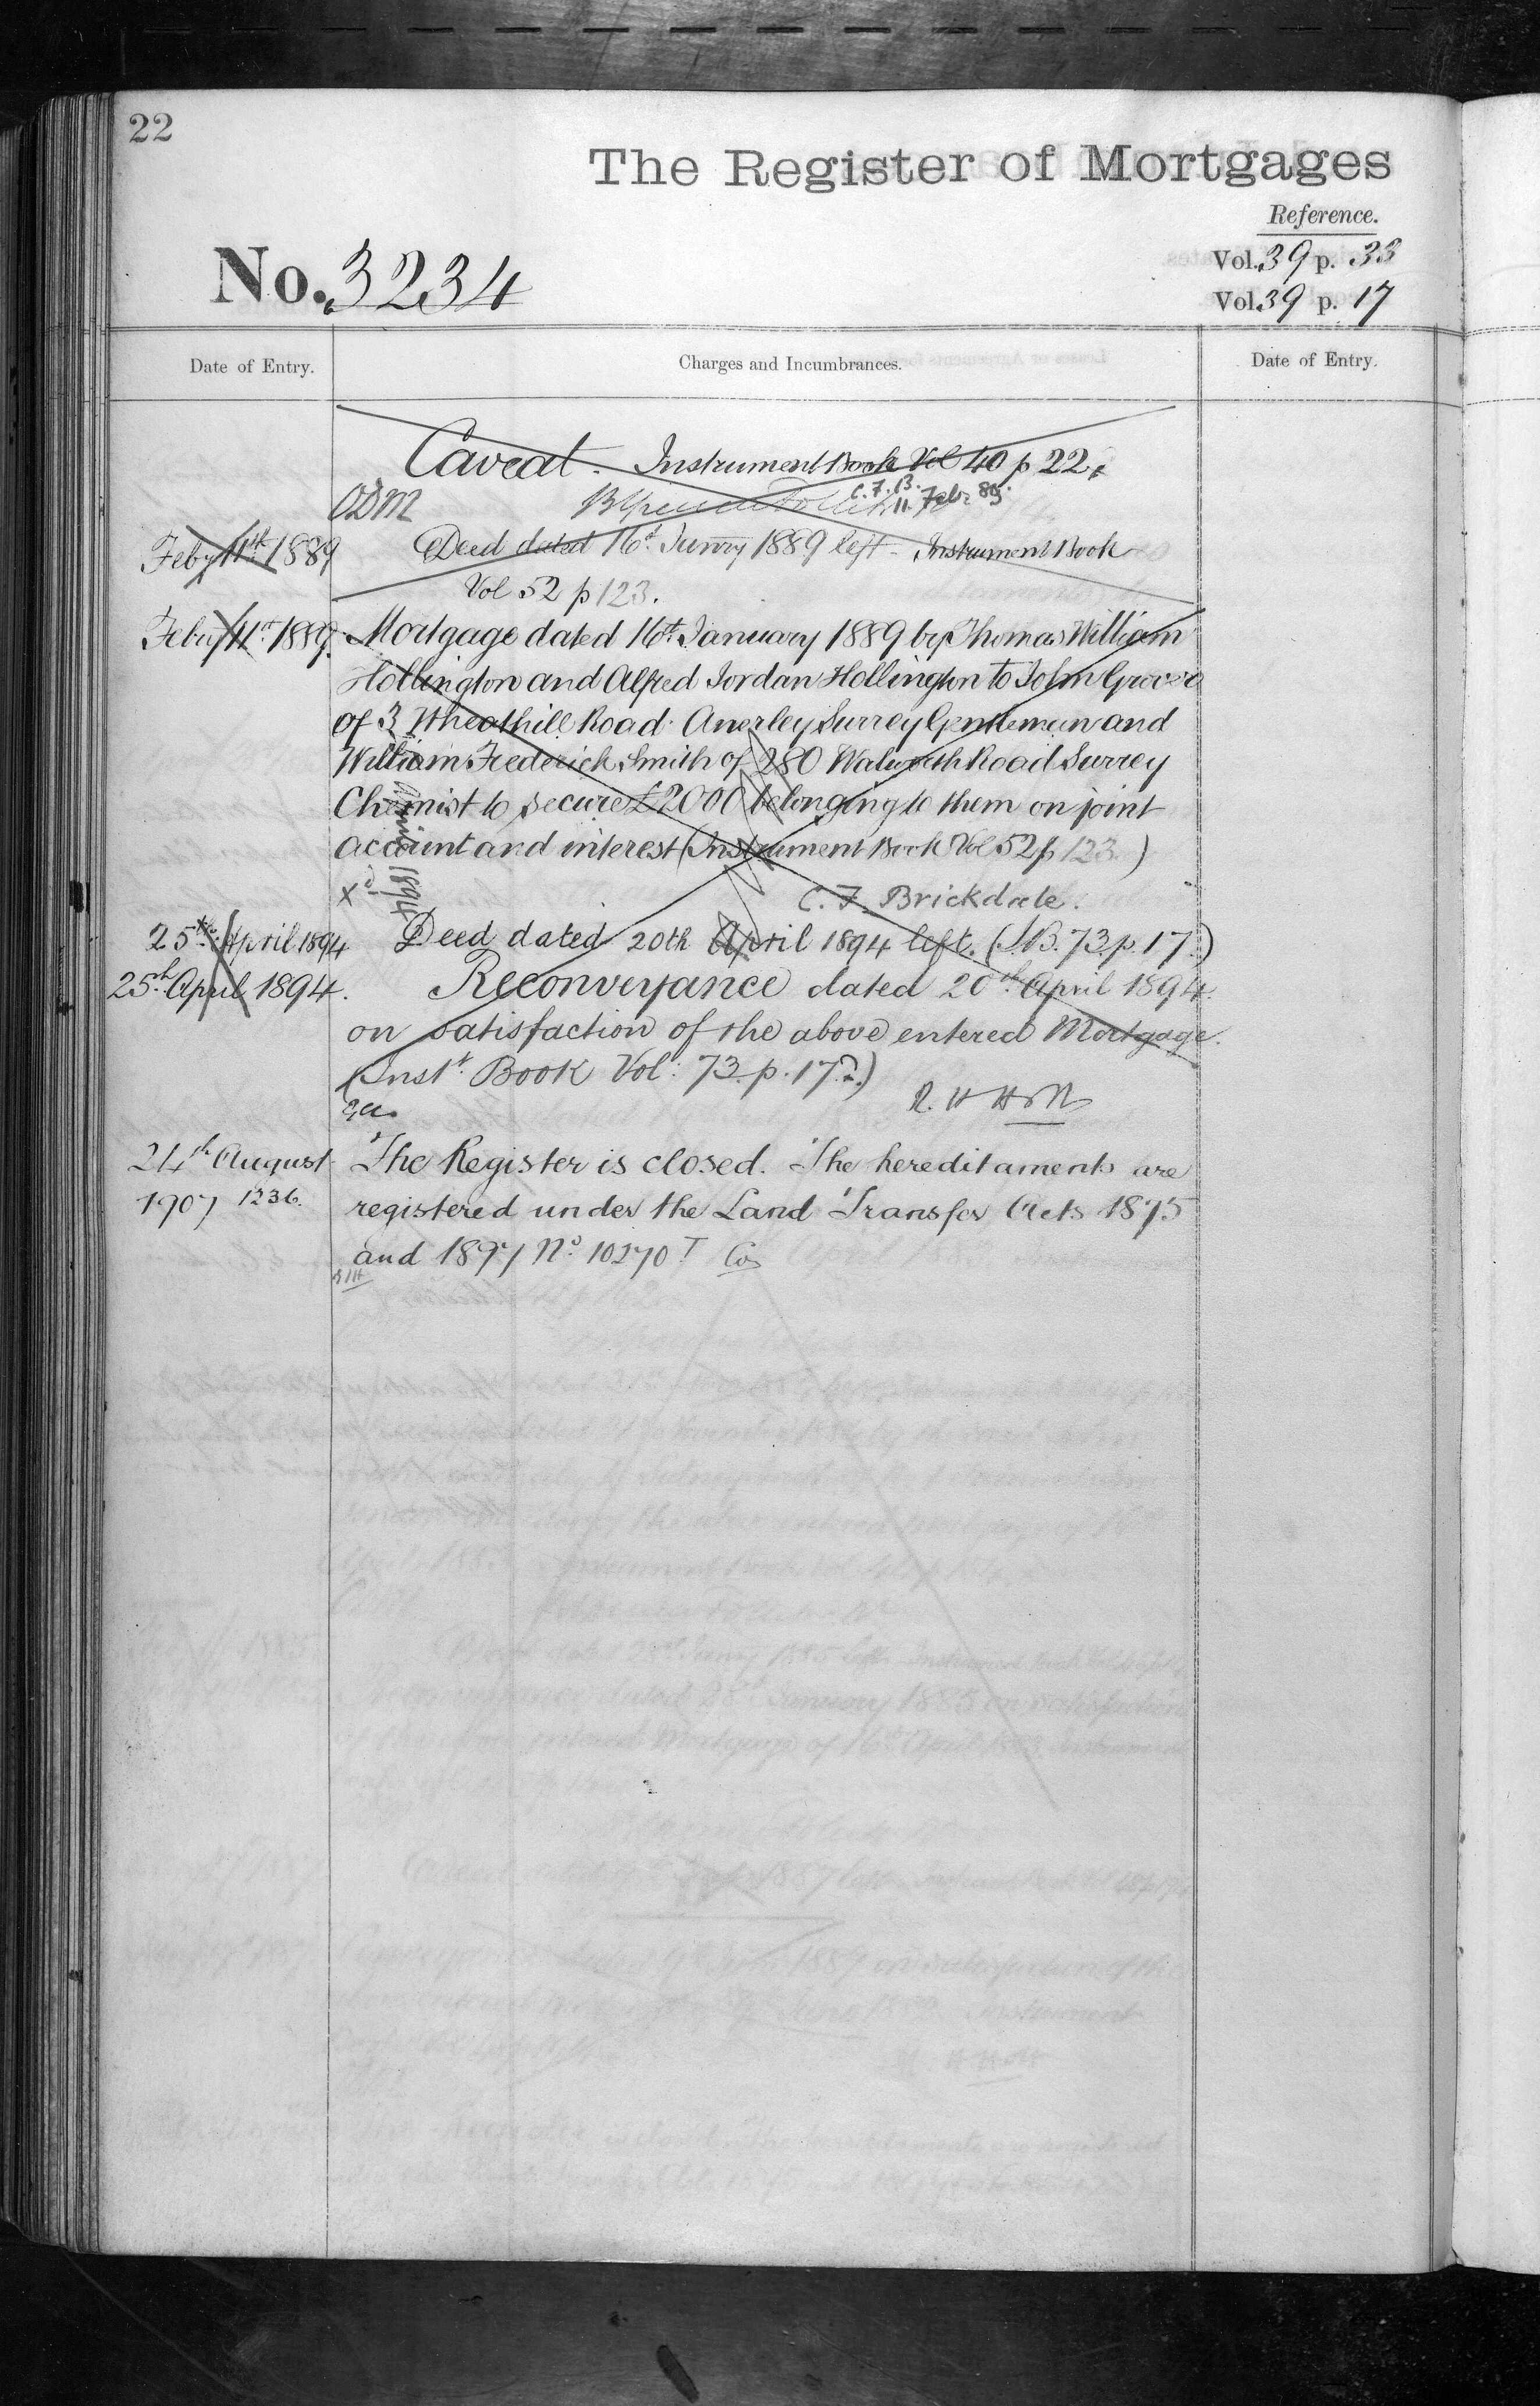 22
The Register of Mortgages
Reference.
No. 3234
Vol. 39 p. 33
Vol. 39 p. 17
Date of Entry.
Charges and Incumbrances.
Date of Entry.
Caveat. Instrument Book Vol 40 p 22
C.F.B.
11 Feby 89.
ODM
Feby 11th 1889
Deed dated 16th Janry 1889 left - Instrument Book
Vol 52 p 123.
Feby 11th 1889.
Mortgage dated 16th January 1889 by Thomas William
Hollington and Alfred Jordan Hollington to John Grover
of 3 Wheathill Road Anerley Surrey Gentleman and
William Frederick Smith of 280 Walworth Road Surrey
Chemist to secure £2000 belonging to them on joint
account and interest (Instrument Book Vol 52 p 123.)
Xd
1894
C. F. Brickdale.
25th April 1894
Deed dated 20th April 1894 left. (I.B. 73. p. 17 )
25th April 1894.
Reconveyance dated 20th April 1894.
on satisfaction of the above entered Mortgage.
(Inst. Book Vol: 73. p. 172.)
24th August
1907 1236.
The Register is closed. The hereditaments are
registered under the Land Transfer Acts 1875
and 1897 No 10270 T